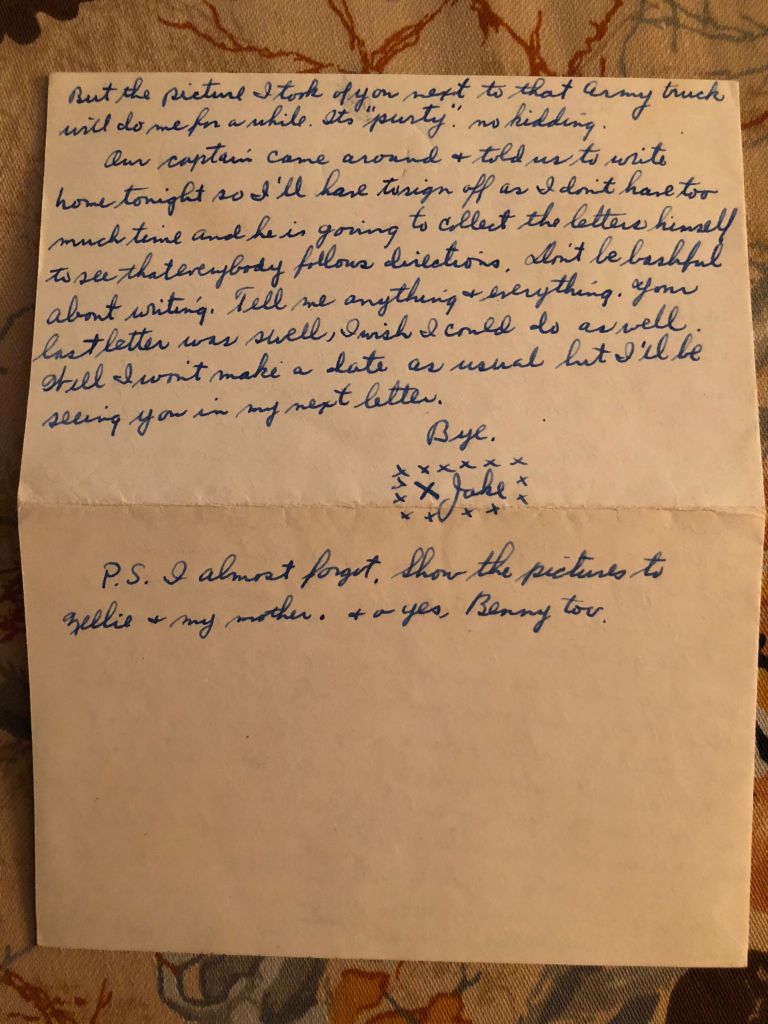 But the picture I took of you next to that Army truck
will do me for a while. Its "purty". no kidding.
Our captain came around + told us to write
home tonight so I'll have to sign off as I don't have too
much time and he is going to collect the letters himself
to see that everybody follows directions. Don't be bashful
about writing. Tell me anything + everything. Your
last letter was swell, I wish I could do as well.
Well I won't make a date as usual but I'll be
seeing you in my next letter.
Bye.
x x x x x x
x X Jake x
x x
x x x x
P.S. I almost forgot. Show the pictures to
+ my mother. + o yes, Benny too.